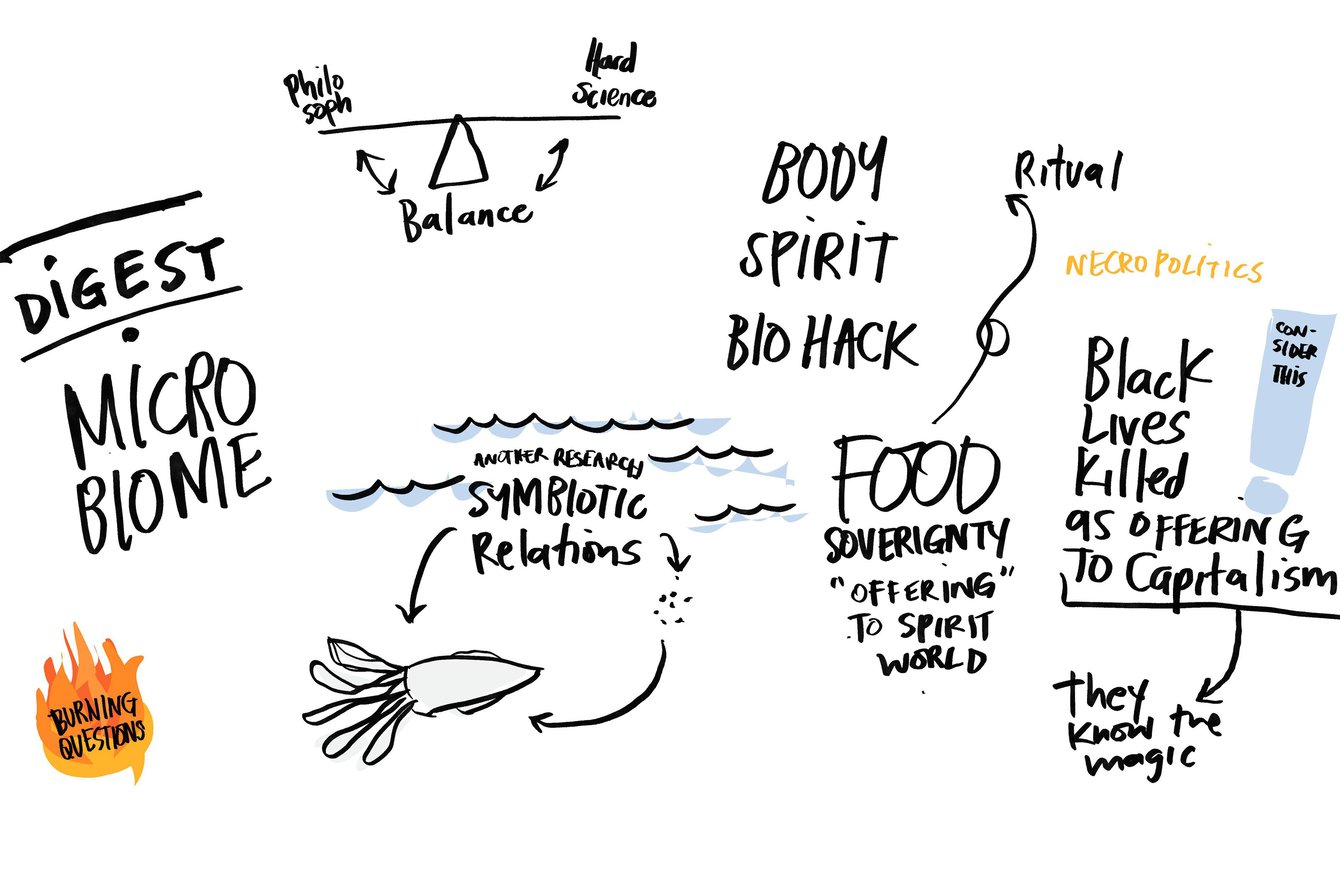 Philo
soph
Hard
Science
Balance
DiGEST
MICRO
BIOME
BURNING
QUESTIONS
ANOTHER RESEARCH
SYMBIOTIC
Relations
BODY
SPiRiT
BIO HACK
Ritual
FOOD
SOVERIGNTY
"OFFERiNG"
TO SPIRIT
WORLD
NECROPOLITICS
CON-
SIDER
THiS
Black
Lives
Killed
as OFFERING
TO Capitalism
They
know the
magic